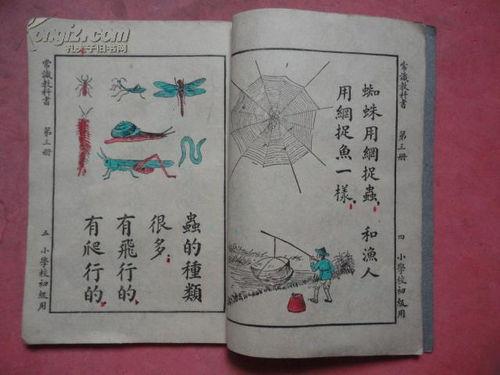 常識教科書 第三冊
四 小學校初級用
蜘蛛用網捉蟲，和漁人
用網捉魚一樣。
常識教科書 第三冊
五 小學校初級用
蟲的種類
很多。
有飛行的，
有爬行的，
kongfz.com
孔夫子旧书网